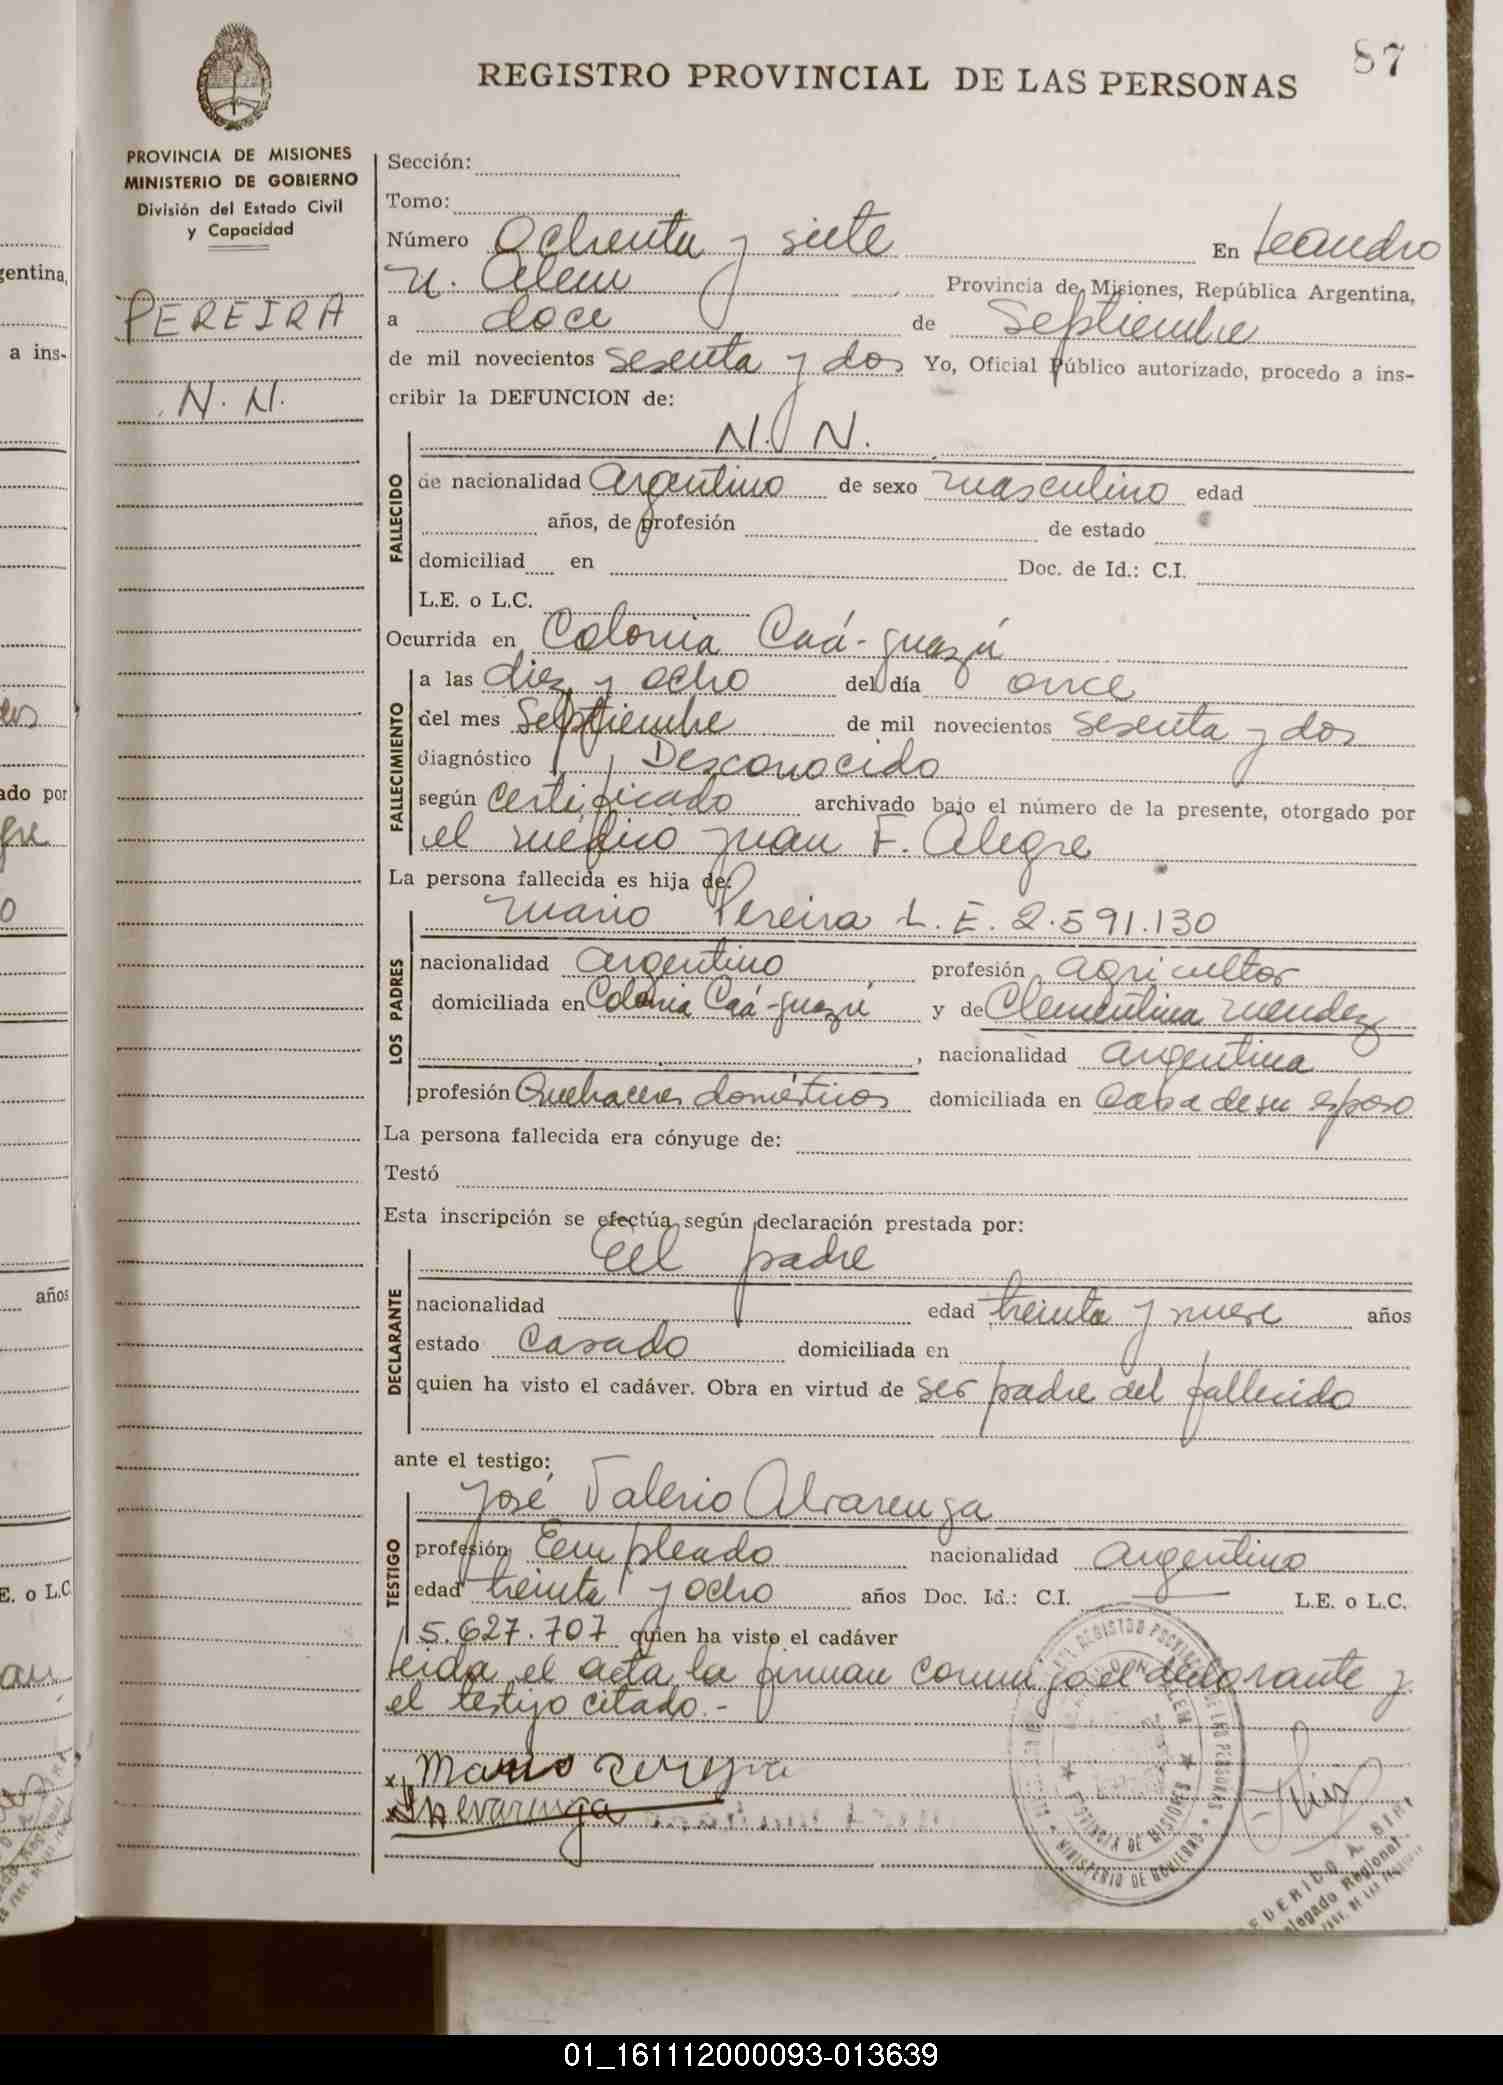 87
REGISTRO PROVINCIAL DE LAS PERSONAS
PROVINCIA DE MISIONES
MINISTERIO DE GOBIERNO
División del Estado Civil
y Capacidad
PEREIRA
N. N.
Sección:
Tomo:
Número Ochenta y siete En Leandro
N. Alem Provincia de Misiones, República Argentina,
a doce de Septiembre
de mil novecientos sesenta y dos Yo, Oficial Público autorizado, procedo a ins-
cribir la DEFUNCION de:
N. N.
FALLECIDO
de nacionalidad Argentino de sexo masculino edad
años, de profesión de estado
domiciliad en Doc. de Id.: C.I.
L.E. o L.C.
Ocurrida en Colonia Caá-guazú
FALLECIMIENTO
a las diez y ocho del día once
del mes Septiembre de mil novecientos sesenta y dos
diagnóstico Desconocido
según certificado archivado bajo el número de la presente, otorgado por
el médico Juan F. Alegre
La persona fallecida es hija de:
LOS PADRES
Mario Pereira L. E. 2.591.130
nacionalidad Argentino profesión agricultor
domiciliada en Colonia Caá-guazú y de Clementina Mendez
, nacionalidad argentina
profesión Quehaceres domésticos domiciliada en Casa de su esposo
La persona fallecida era cónyuge de:
Testó
Esta inscripción se efectúa según declaración prestada por:
DECLARANTE
El padre
nacionalidad edad treinta y nueve años
estado Casado domiciliada en
quien ha visto el cadáver. Obra en virtud de ser padre del fallecido
ante el testigo:
TESTIGO
José Valerio Alvarenga
profesión Empleado nacionalidad Argentino
edad treinta y ocho años Doc. Id.: C.I. — L.E. o L.C.
5.627.707 quien ha visto el cadáver
Leida el acta la firman conmigo el declarante y
el testigo citado.-
x Mario Pereyra
x Alvarenga
MINISTERIO DE GOBIERNO
PROVINCIA DE MISIONES
gentina,
a ins-
ado por
años
E. o L.C
01_161112000093-013639